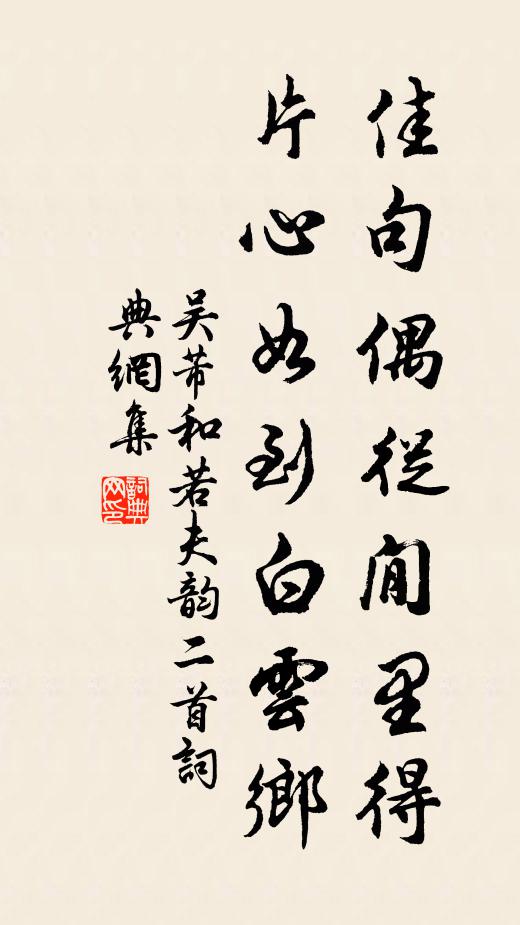 佳句偶從閒里得
片心如到白雲鄉
吳芾和若夫韵二首詞
典網集
詞典网印